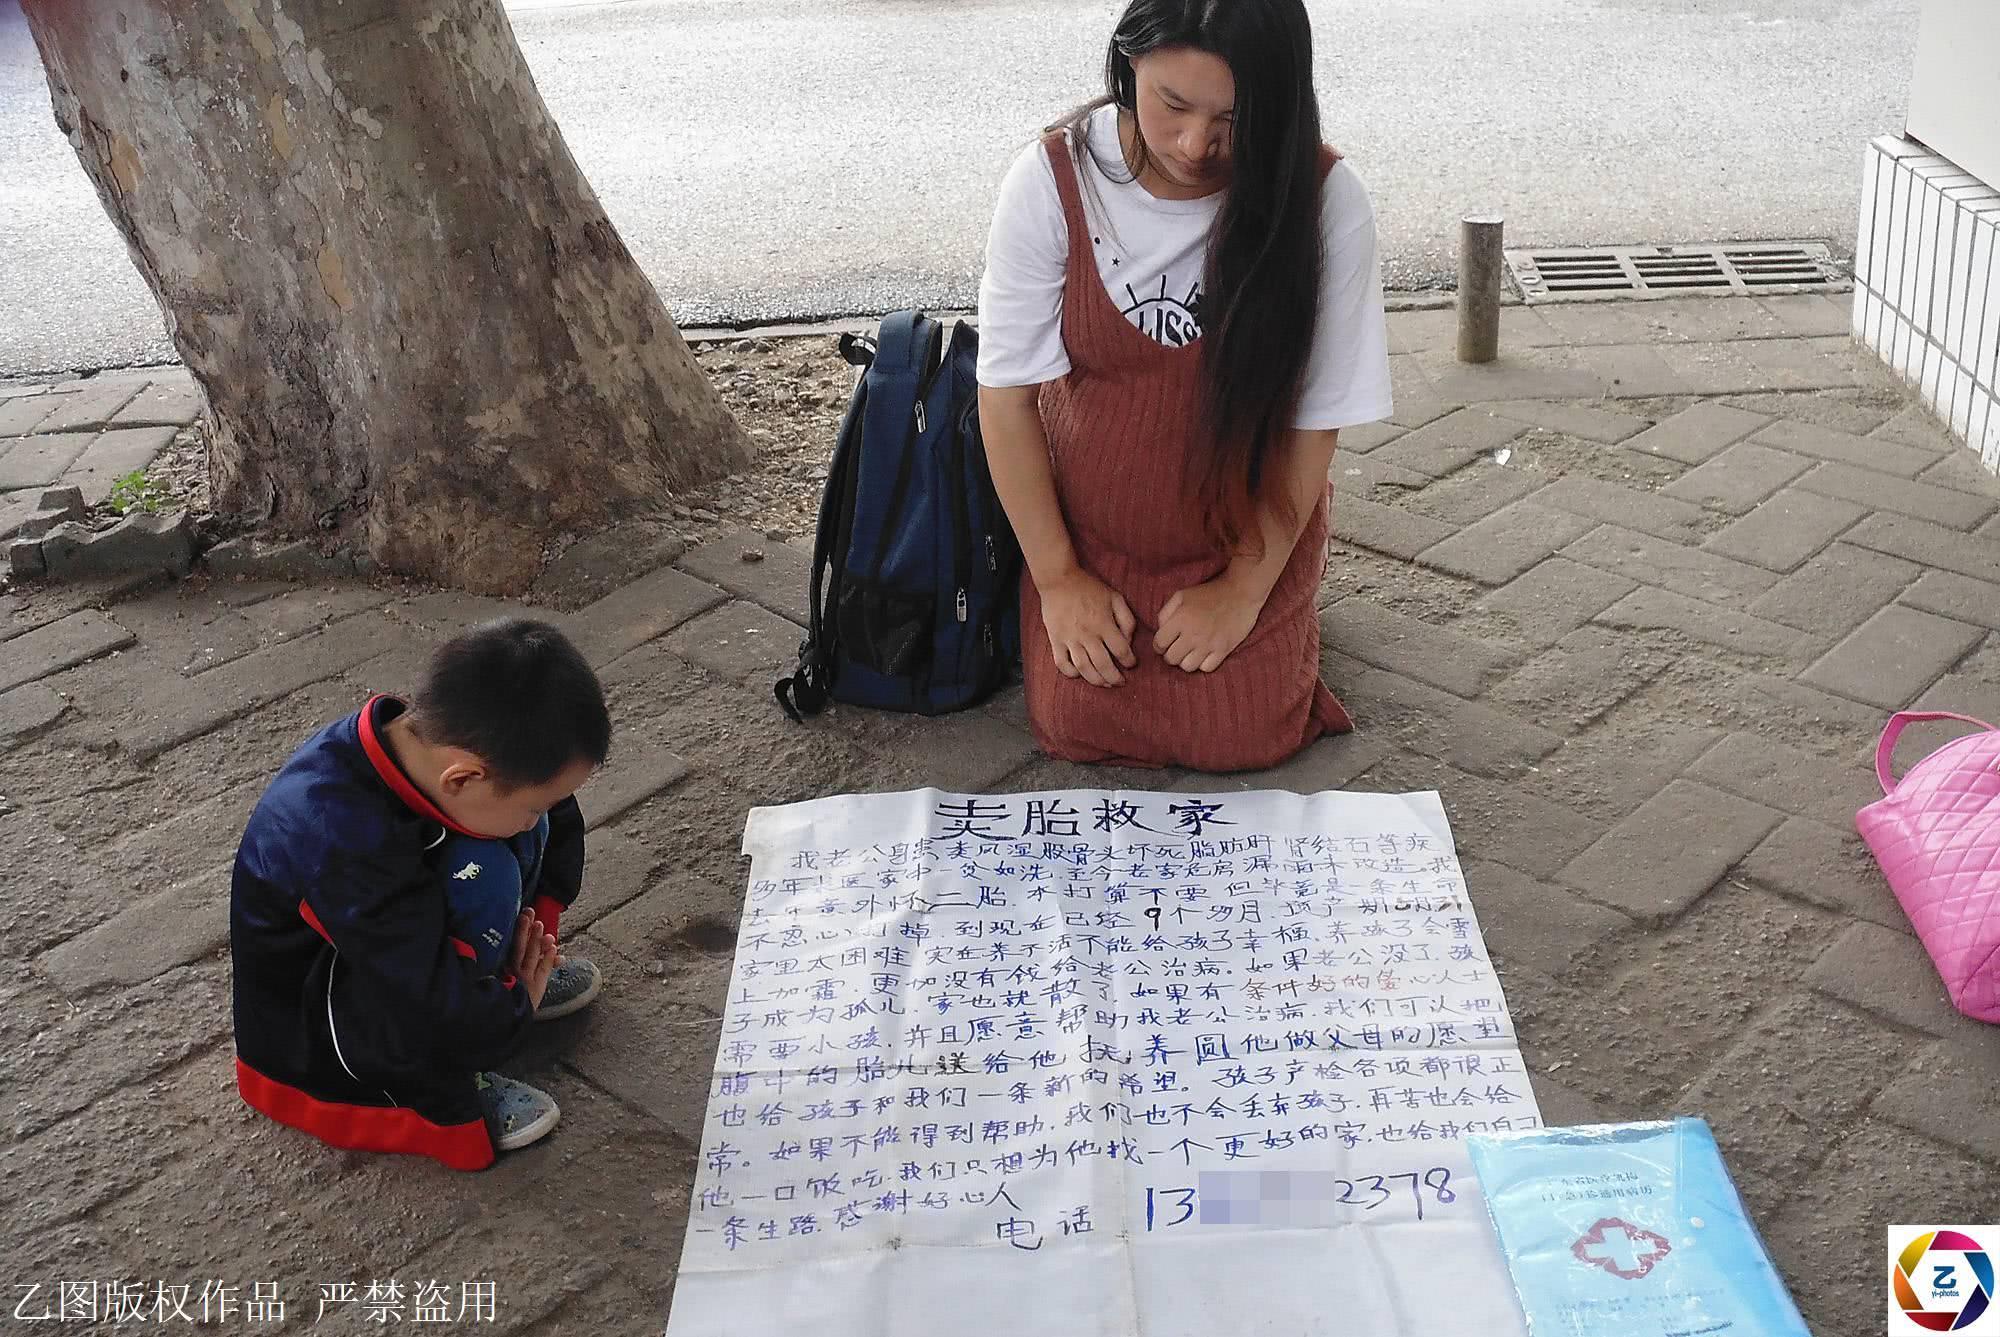 卖胎救家
我老公身患类风湿股骨头坏死脂肪肝肾结石等病
多年求医家中一贫如洗,至今老家危房漏雨未改造。我
去年意外怀二胎,本打算不要但毕竟是一条生命
不忍心打掉,到现在已经9个多月,预产期
家里太困难实在养不活不能给孩子幸福,养孩子会雪
上加霜,更加没有钱给老公治病。如果老公没了,孩
子成为孤儿,家也就散了如果有条件好的爱心人士
需要小孩,并且愿意帮助我老公治病,我们可以把
腹中的胎儿送给他扶养圆他做父母的愿望
也给孩子和我们一条新的希望。孩子产检各项都很正
常。如果不能得到帮助,我们也不会丢弃孩子,再苦也会给
他一口饭吃,我们只想为他找一个更好的家,也给我们自己
一条生路,感谢好心人
电话 13 2378
广东省医疗机构
门(急)诊通用病历
乙图版权作品 严禁盗用
乙
yi-photos